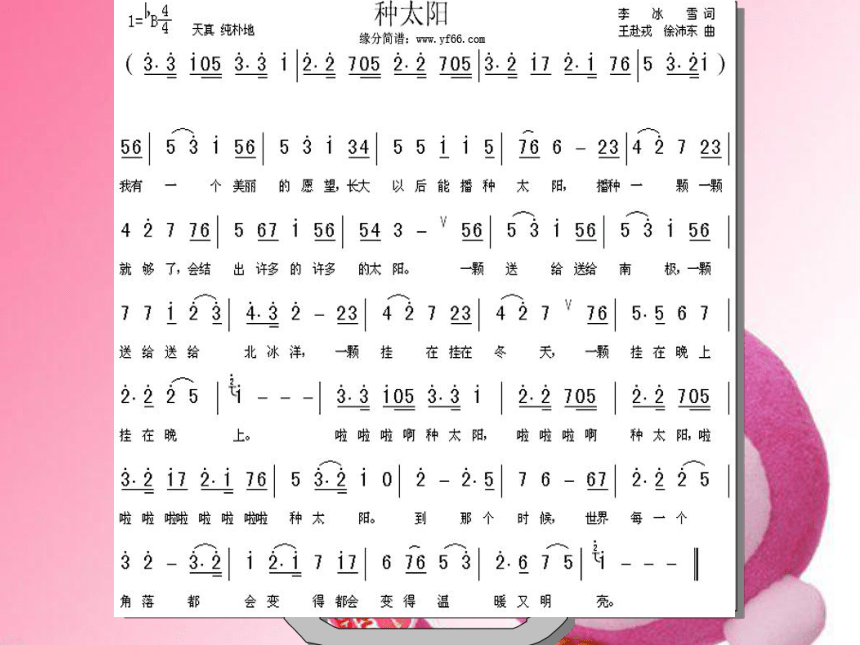 种太阳
1=♭B 4/4
天真 纯朴地
缘分简谱：www.yf66.com
李 冰 雪 词
王赴戎 徐沛东 曲
( 3· 3 105 3· 3 1 | 2· 2 705 2· 2 705 | 3· 2 17 2· 1 76 | 5 3· 21 )
56 | 5 3 1 56 | 5 3 1 34 | 5 5 1 1 5 | 76 6 - 23 | 4 2 7 23 |
我有 一 个 美丽 的 愿 望, 长大 以 后 能 播 种 太 阳, 播种 一 颗 一颗
4 2 7 76 | 5 67 1 56 | 54 3 - V 56 | 5 3 1 56 | 5 3 1 56 |
就 够 了, 会结 出 许多 的 许多 的太 阳。 一颗 送 给 送给 南 极, 一颗
7 7 1 2 3 | 4· 3 2 - 23 | 4 2 7 23 | 4 2 7 V 76 | 5· 5 6 7 |
送 给 送 给 北 冰 洋, 一颗 挂 在 挂在 冬 天, 一颗 挂 在 晚 上
2· 2 2 5 | 2 1 - - - | 3· 3 105 3· 3 1 | 2· 2 705 | 2· 2 705 |
挂 在 晚 上。 啦 啦 啦 啊 种 太 阳, 啦 啦 啦 啊 种 太 阳, 啦
3· 2 17 2· 1 76 | 5 3· 2 1 0 | 2 - 2· 5 | 7 6 - 67 | 2· 2 2 5 |
啦 啦 啦啦 啦 啦 啦啦 种 太 阳。 到 那 个 时 候, 世界 每 一 个
3 2 - 3· 2 | 1 2· 1 7 17 | 6 76 5 3 | 2· 6 7 5 | 2 1 - - - ‖
角 落 都 会 变 得 都会 变 得 温 暖 又 明 亮。